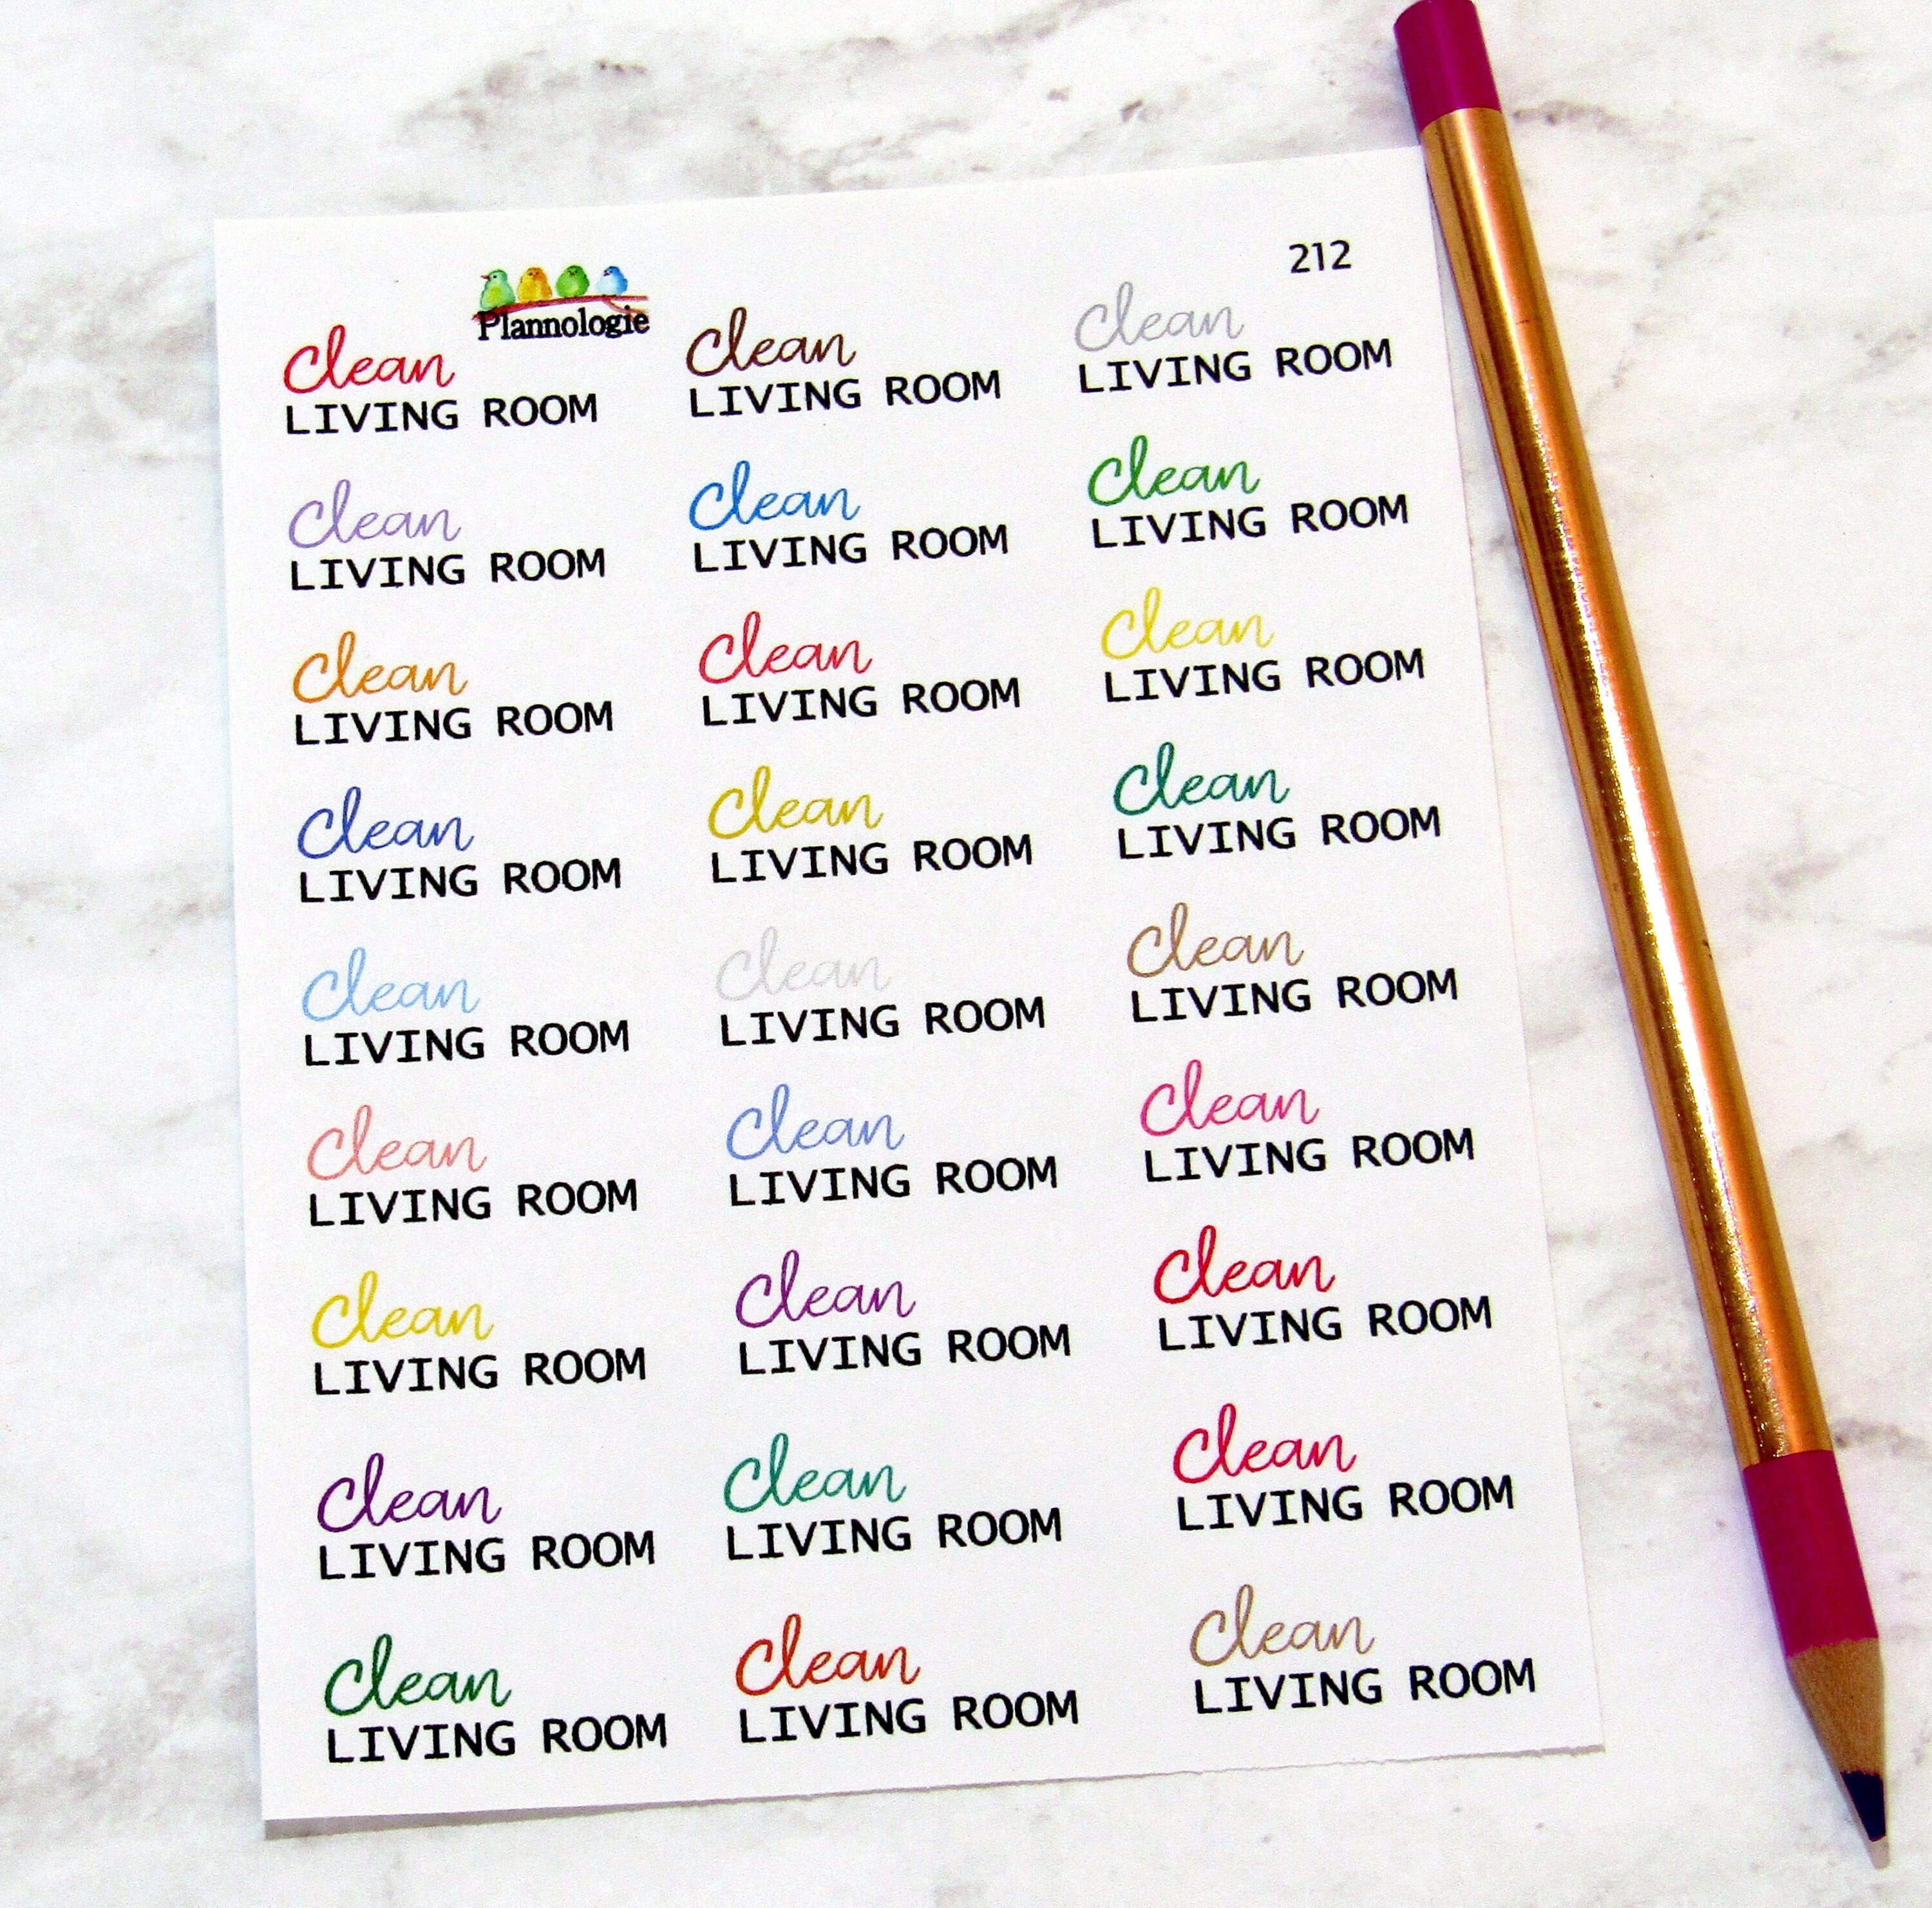 212
Plannologie
Clean Clean Clean
LIVING ROOM LIVING ROOM LIVING ROOM
Clean Clean Clean
LIVING ROOM LIVING ROOM LIVING ROOM
Clean Clean Clean
LIVING ROOM LIVING ROOM LIVING ROOM
Clean Clean Clean
LIVING ROOM LIVING ROOM LIVING ROOM
Clean Clean Clean
LIVING ROOM LIVING ROOM LIVING ROOM
Clean Clean Clean
LIVING ROOM LIVING ROOM LIVING ROOM
Clean Clean Clean
LIVING ROOM LIVING ROOM LIVING ROOM
Clean Clean Clean
LIVING ROOM LIVING ROOM LIVING ROOM
Clean Clean Clean
LIVING ROOM LIVING ROOM LIVING ROOM